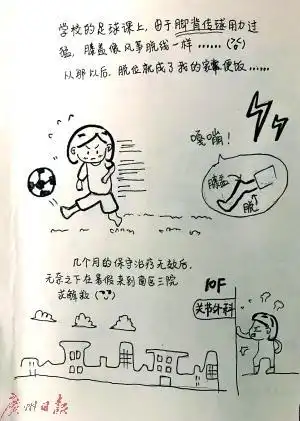 学校的足球课上，由于脚背传球用力过
猛，膝盖像风筝脱线一样……
从那以后，脱位就成了我的家常便饭……
嘎嘣！
膝盖
脱
几个月的保守治疗无效后，
无奈之下在暑假来到南医三院
求解救
10F
关节外科
广州日报